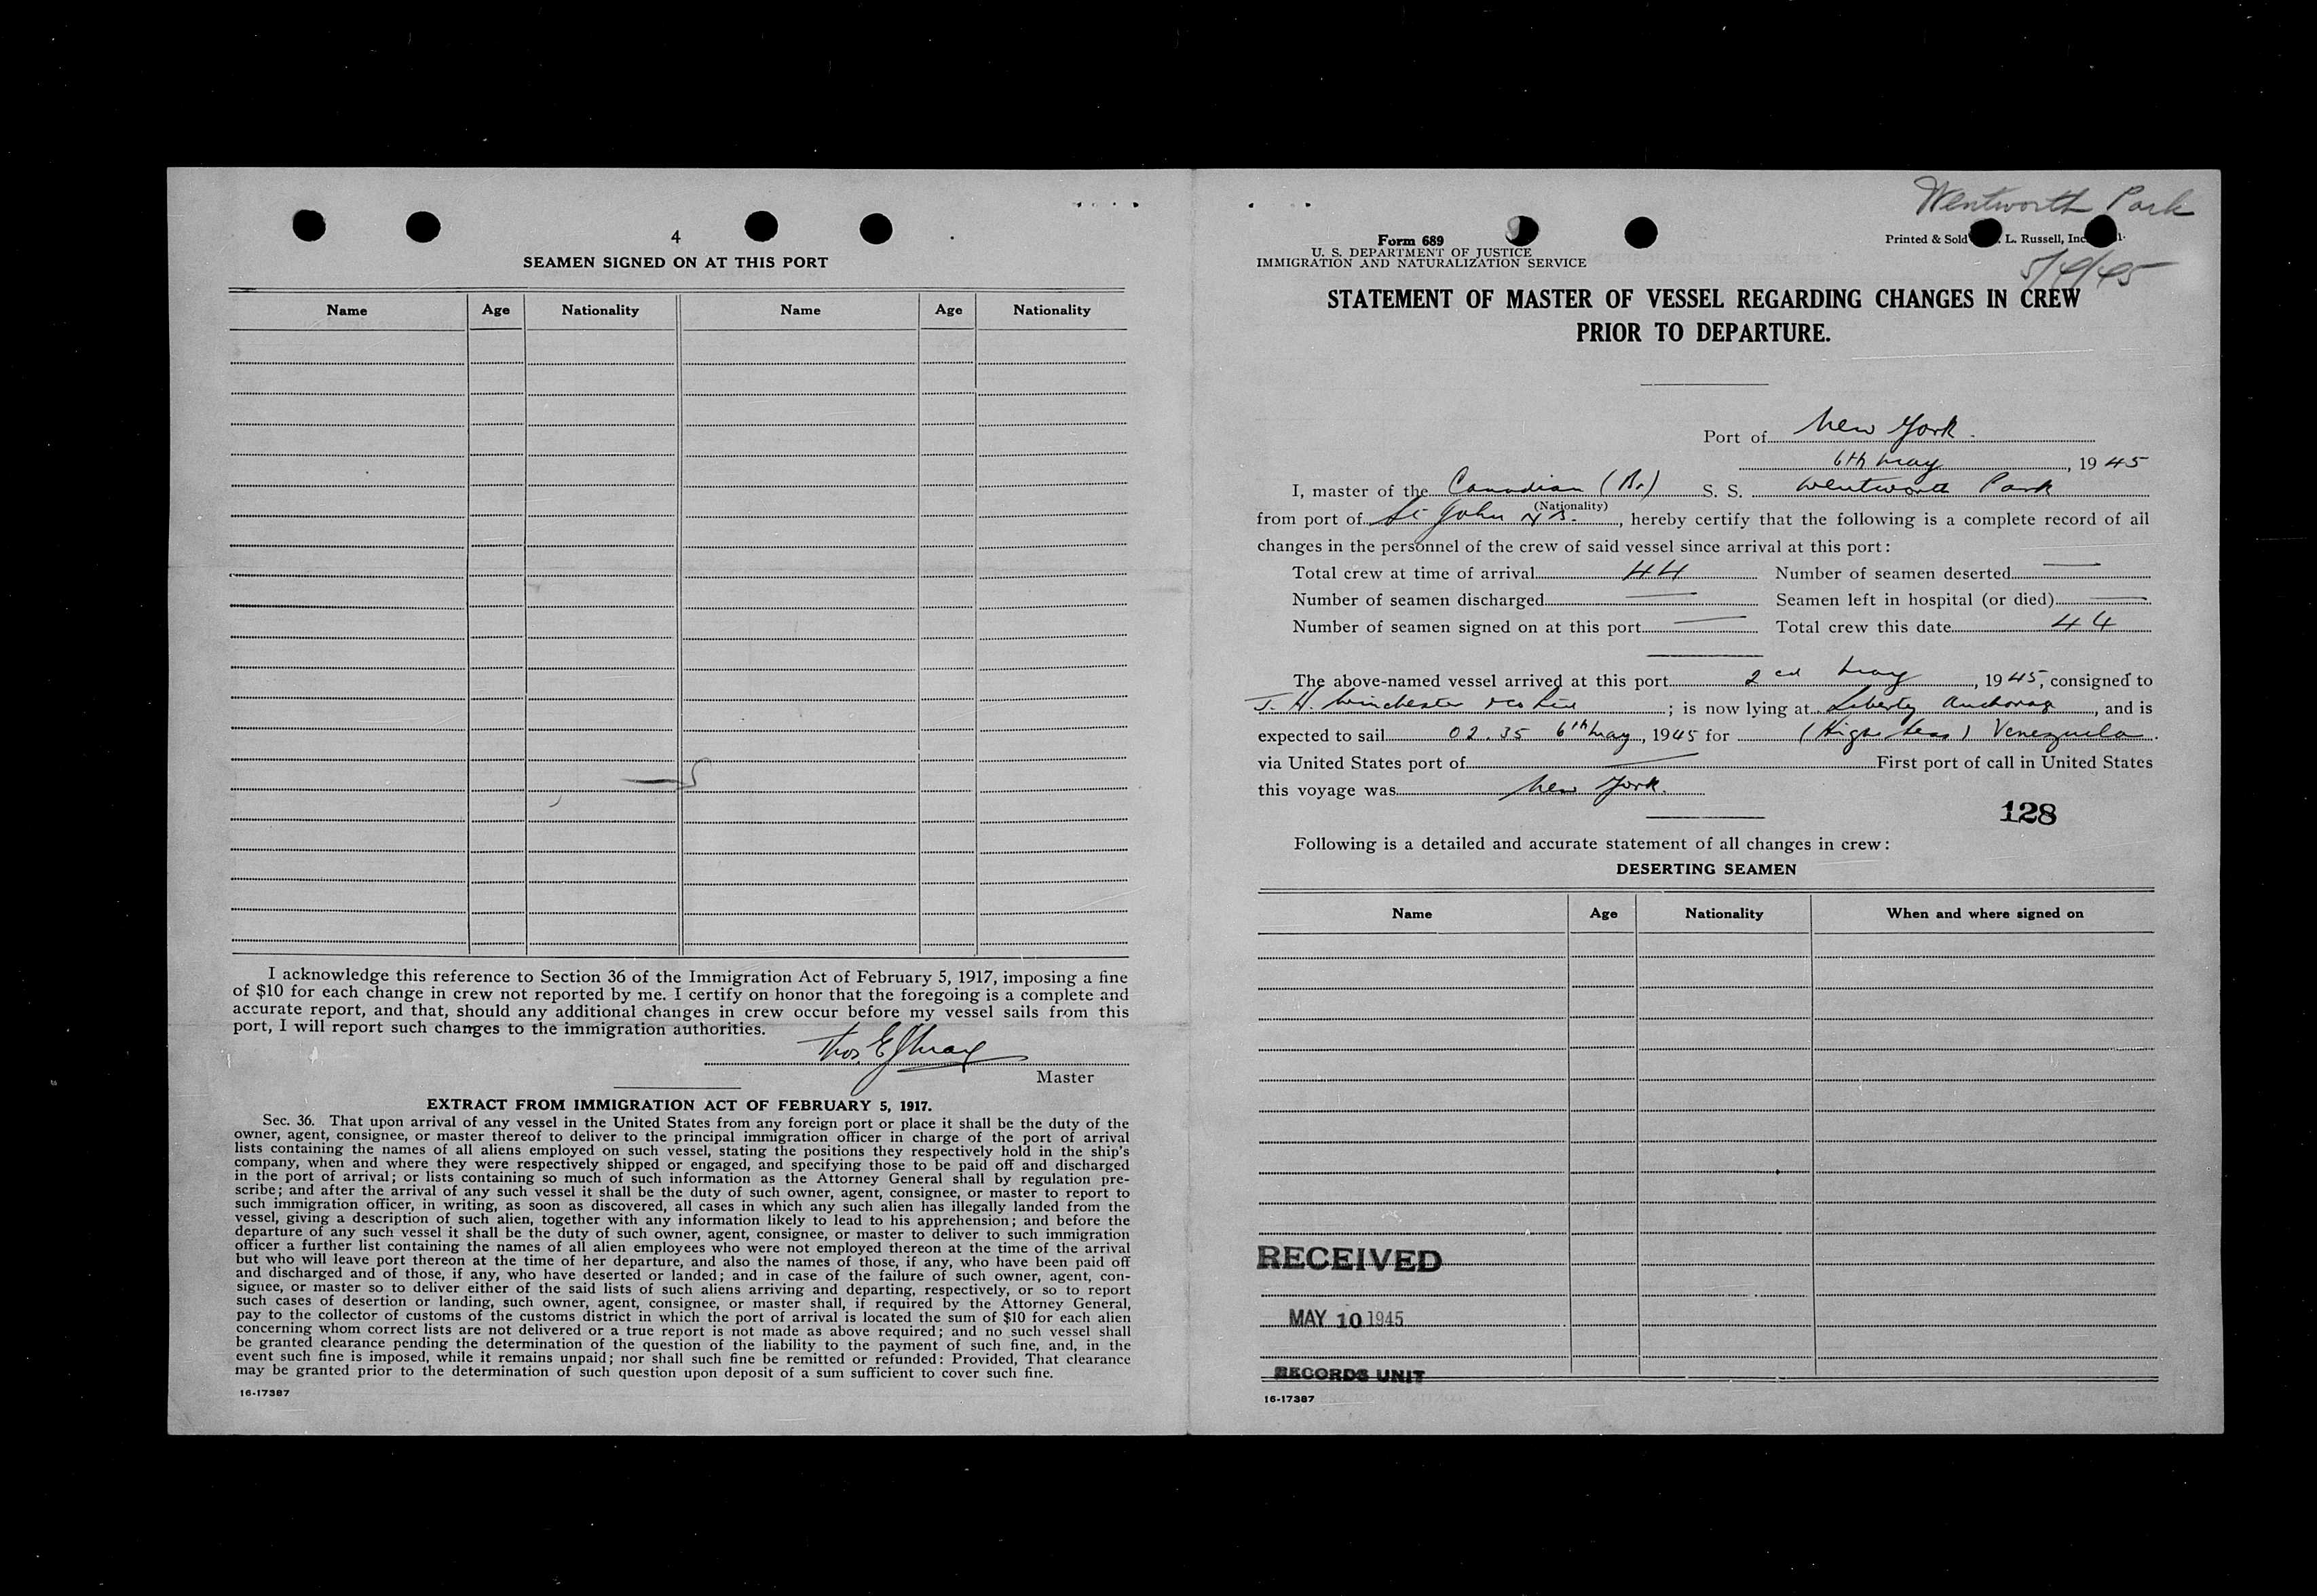 4
SEAMEN SIGNED ON AT THIS PORT
Name Age Nationality Name Age Nationality
I acknowledge this reference to Section 36 of the Immigration Act of February 5, 1917, imposing a fine
of $10 for each change in crew not reported by me. I certify on honor that the foregoing is a complete and
accurate report, and that, should any additional changes in crew occur before my vessel sails from this
port, I will report such changes to the immigration authorities.
Thos. E.
Master
EXTRACT FROM IMMIGRATION ACT OF FEBRUARY 5, 1917.
Sec. 36. That upon arrival of any vessel in the United States from any foreign port or place it shall be the duty of the
owner, agent, consignee, or master thereof to deliver to the principal immigration officer in charge of the port of arrival
lists containing the names of all aliens employed on such vessel, stating the positions they respectively hold in the ship's
company, when and where they were respectively shipped or engaged, and specifying those to be paid off and discharged
in the port of arrival; or lists containing so much of such information as the Attorney General shall by regulation pre-
scribe; and after the arrival of any such vessel it shall be the duty of such owner, agent, consignee, or master to report to
such immigration officer, in writing, as soon as discovered, all cases in which any such alien has illegally landed from the
vessel, giving a description of such alien, together with any information likely to lead to his apprehension; and before the
departure of any such vessel it shall be the duty of such owner, agent, consignee, or master to deliver to such immigration
officer a further list containing the names of all alien employees who were not employed thereon at the time of the arrival
but who will leave port thereon at the time of her departure, and also the names of those, if any, who have been paid off
and discharged and of those, if any, who have deserted or landed; and in case of the failure of such owner, agent, con-
signee, or master so to deliver either of the said lists of such aliens arriving and departing, respectively, or so to report
such cases of desertion or landing, such owner, agent, consignee, or master shall, if required by the Attorney General,
pay to the collector of customs of the customs district in which the port of arrival is located the sum of $10 for each alien
concerning whom correct lists are not delivered or a true report is not made as above required; and no such vessel shall
be granted clearance pending the determination of the question of the liability to the payment of such fine, and, in the
event such fine is imposed, while it remains unpaid; nor shall such fine be remitted or refunded: Provided, That clearance
may be granted prior to the determination of such question upon deposit of a sum sufficient to cover such fine.
16-17387
Wentworth Park
Form 689
Printed & Sold L. Russell, Inc.
U. S. DEPARTMENT OF JUSTICE
IMMIGRATION AND NATURALIZATION SERVICE
STATEMENT OF MASTER OF VESSEL REGARDING CHANGES IN CREW
PRIOR TO DEPARTURE.
Port of New York.
6th May, 1945
I, master of the Canadian (Br.) S. S. Wentworth Park
(Nationality)
from port of St John N.B., hereby certify that the following is a complete record of all
changes in the personnel of the crew of said vessel since arrival at this port:
Total crew at time of arrival 44 Number of seamen deserted —
Number of seamen discharged — Seamen left in hospital (or died) —
Number of seamen signed on at this port — Total crew this date 44
The above-named vessel arrived at this port 2ed May, 1945, consigned to
J. H. Winchester; is now lying at Liberty Anchorage, and is
expected to sail 02.35 6th May, 1945 for (High Seas) Venezuela.
via United States port of — First port of call in United States
this voyage was New York.
128
Following is a detailed and accurate statement of all changes in crew:
DESERTING SEAMEN
Name Age Nationality When and where signed on
RECEIVED
MAY 10 1945
RECORDS UNIT
16-17387